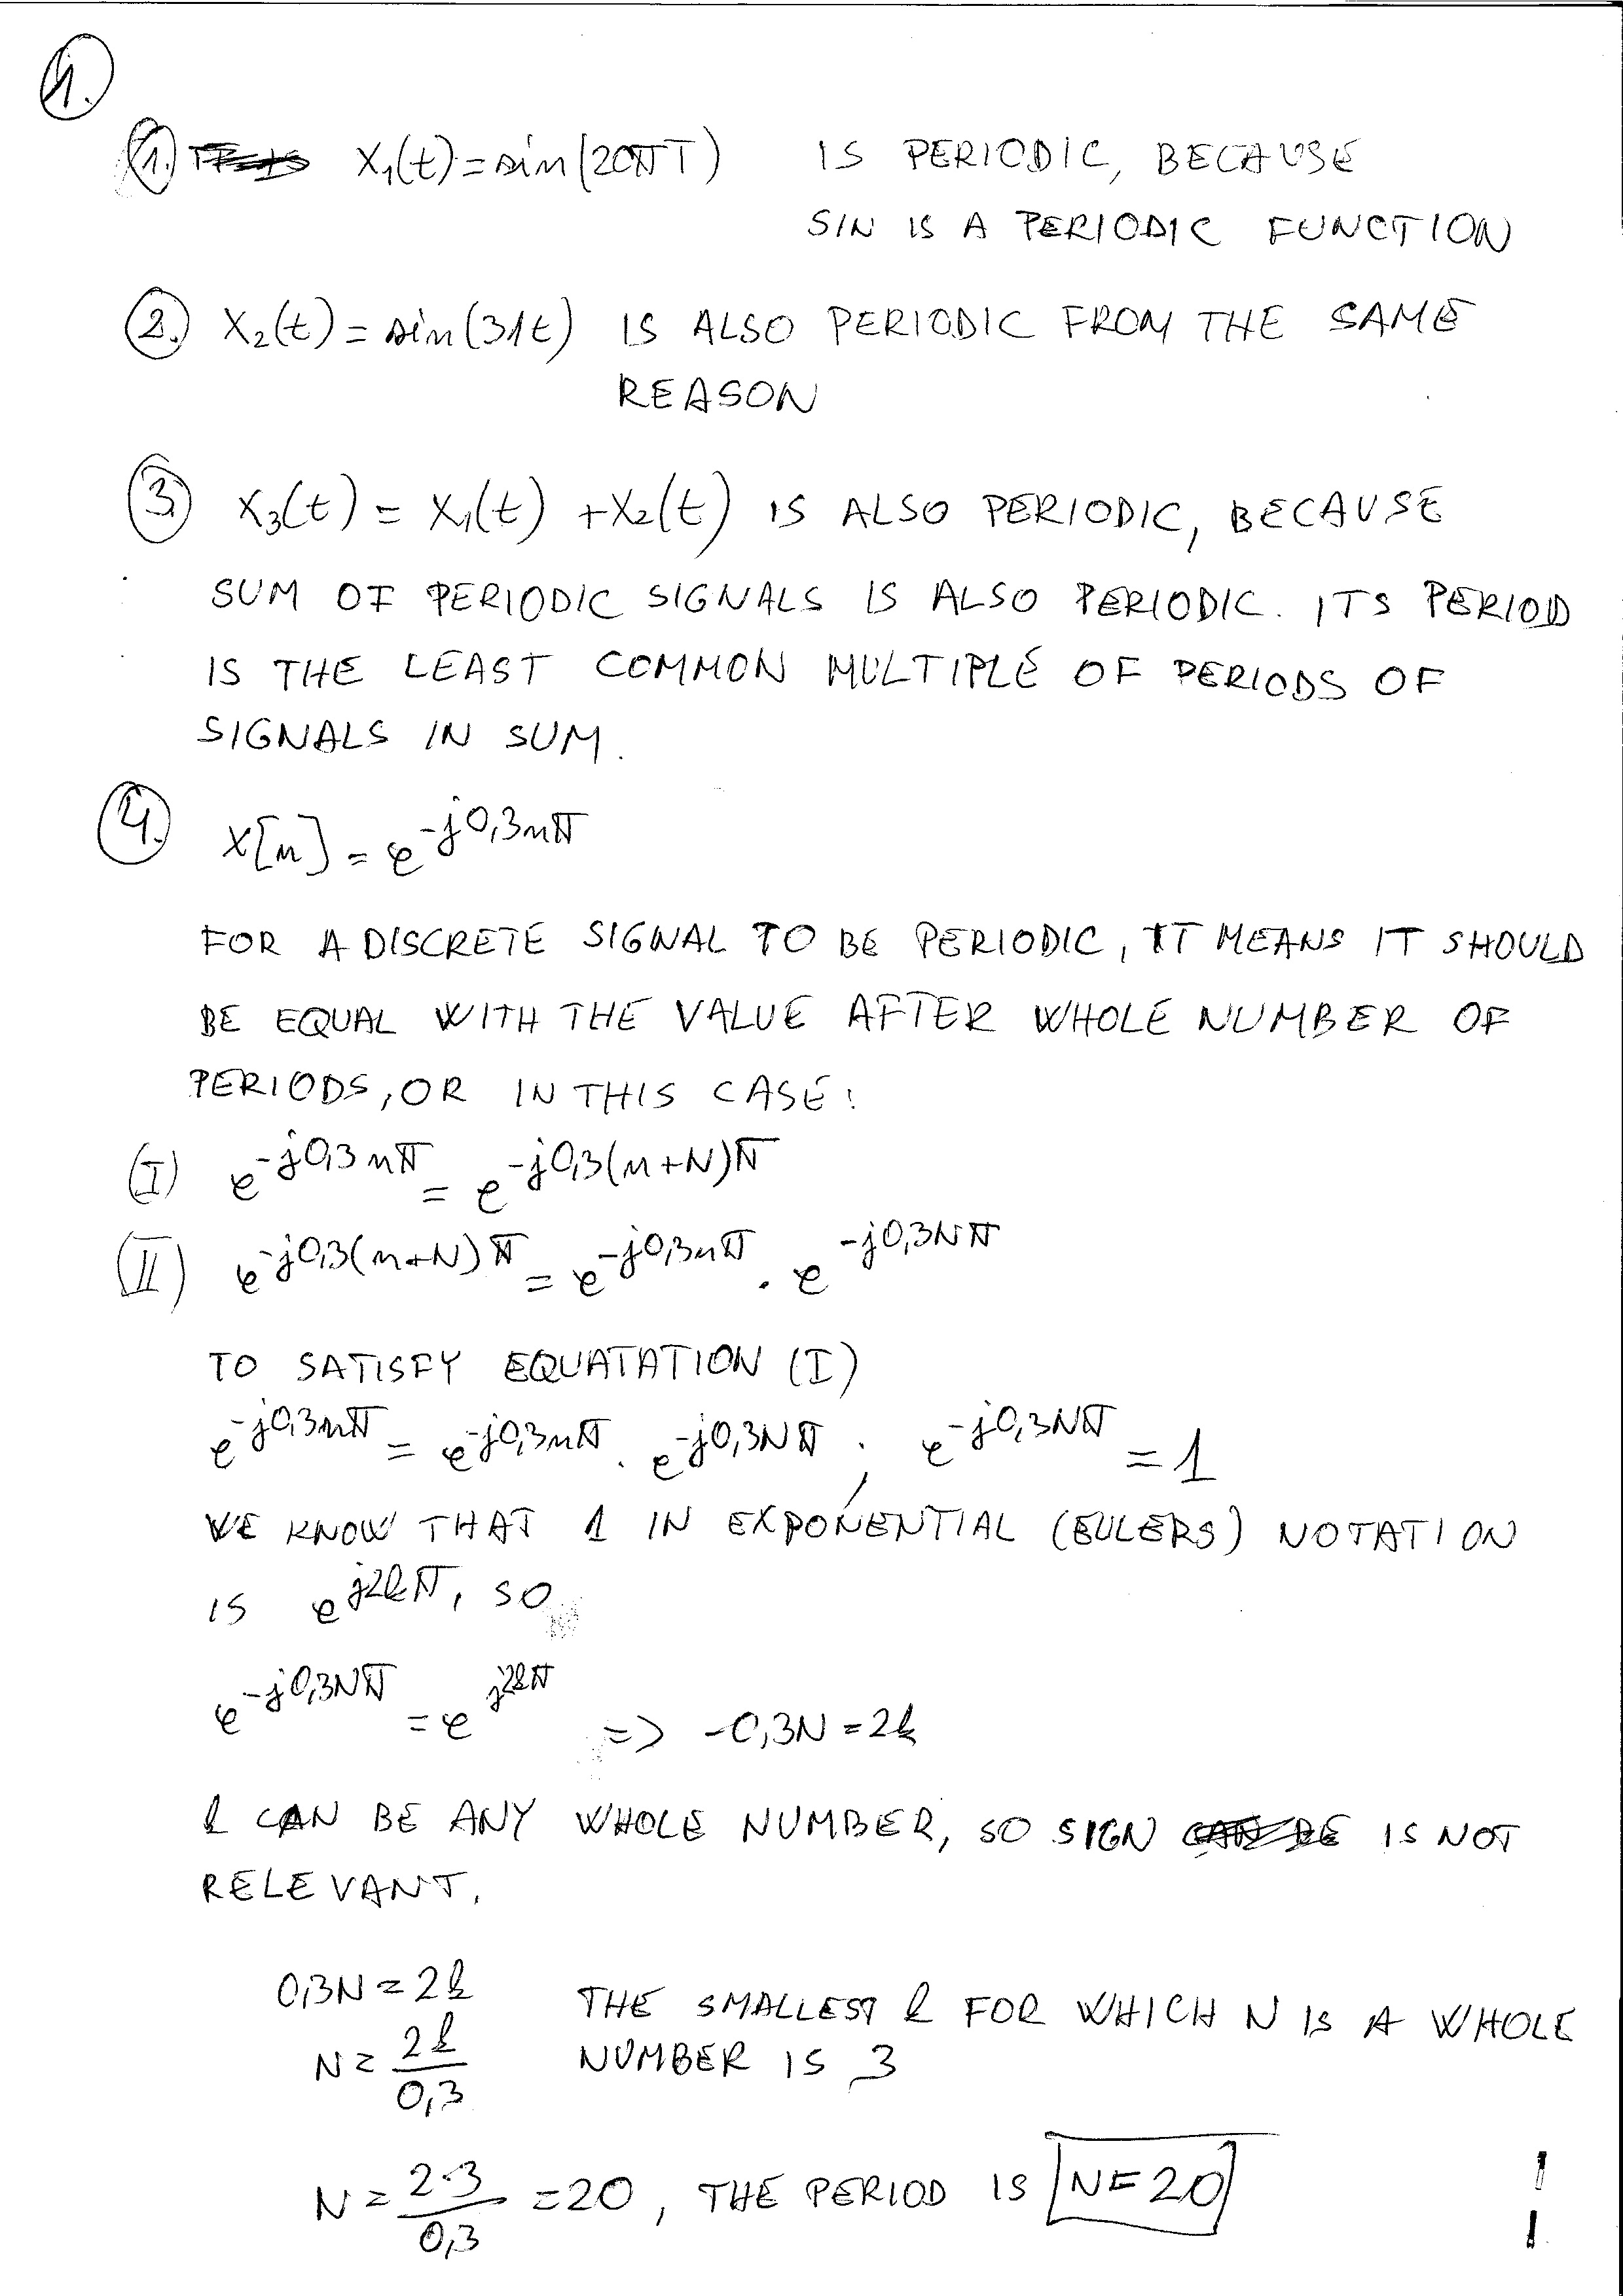 1.
1. x₁(t) = sin(20πT) IS PERIODIC, BECAUSE
SIN IS A PERIODIC FUNCTION
2. x₂(t) = sin(31t) IS ALSO PERIODIC FROM THE SAME
REASON
3. x₃(t) = x₁(t) + x₂(t) IS ALSO PERIODIC, BECAUSE
SUM OF PERIODIC SIGNALS IS ALSO PERIODIC. ITS PERIOD
IS THE LEAST COMMON MULTIPLE OF PERIODS OF
SIGNALS IN SUM.
4. x[n] = e^{-j0,3nπ}
FOR A DISCRETE SIGNAL TO BE PERIODIC, IT MEANS IT SHOULD
BE EQUAL WITH THE VALUE AFTER WHOLE NUMBER OF
PERIODS, OR IN THIS CASE:
(I) e^{-j0,3nπ} = e^{-j0,3(n+N)π}
(II) e^{-j0,3(n+N)π} = e^{-j0,3nπ} · e^{-j0,3Nπ}
TO SATISFY EQUATATION (I)
e^{-j0,3nπ} = e^{-j0,3nπ} · e^{-j0,3Nπ} ; e^{-j0,3Nπ} = 1
WE KNOW THAT 1 IN EXPONENTIAL (EULERS) NOTATION
IS e^{j2kπ}, SO
e^{-j0,3Nπ} = e^{j2kπ} => -0,3N = 2k
k CAN BE ANY WHOLE NUMBER, SO SIGN IS NOT
RELEVANT.
0,3N = 2k THE SMALLEST k FOR WHICH N IS A WHOLE
N = 2k/0,3 NUMBER IS 3
N = 2·3/0,3 = 20, THE PERIOD IS N = 20